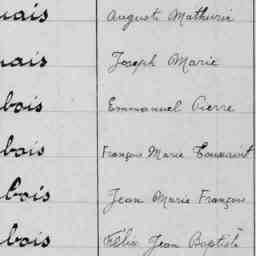 nais Auguste Mathurin
nais Joseph Marie
bois Emmanuel Pierre
bois François Marie Toussaint
bois Jean Marie François
bois Félix Jean Baptiste